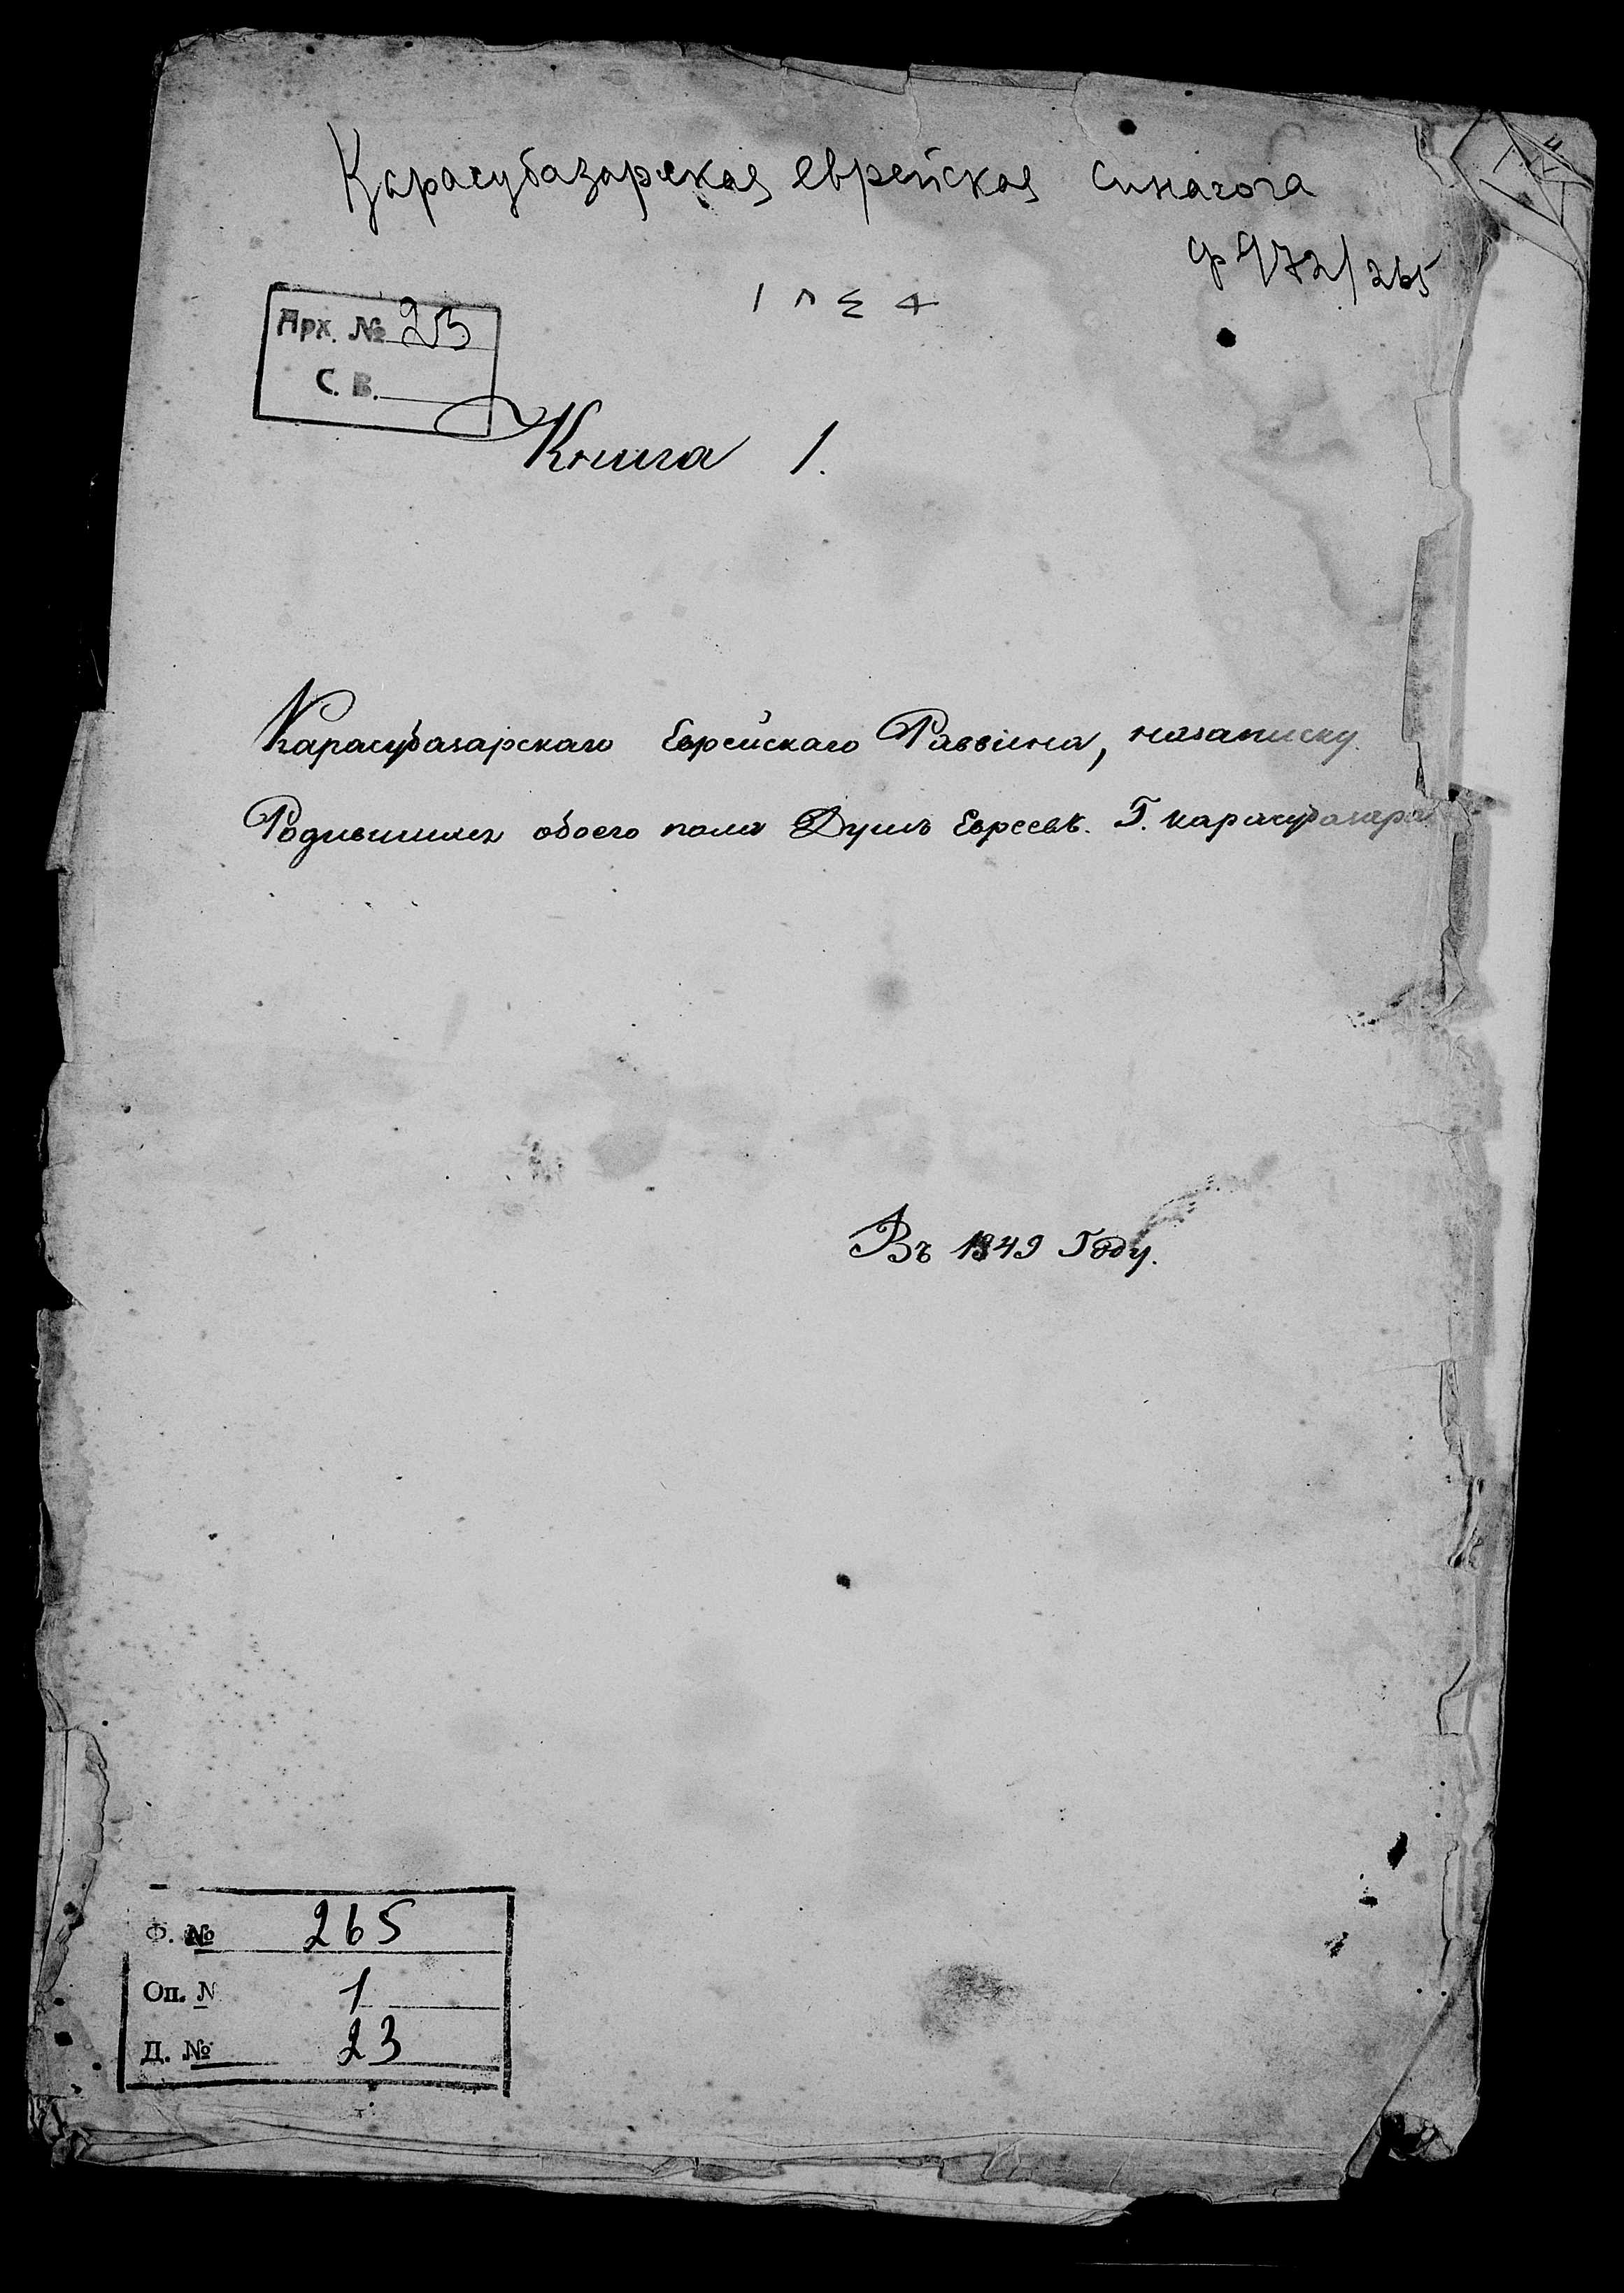 Карасубазарская еврейская синагога
ф 972/265
Арх. № 23
С. В.
Книга 1.
Карасубазарскаго Еврейскаго Раввина, назаписку
Родившихся обоего пола Душъ Евреевъ. Г. Карасубазара
Въ 1849 Году.
Ф. № 265
Оп. № 1
Д. № 23